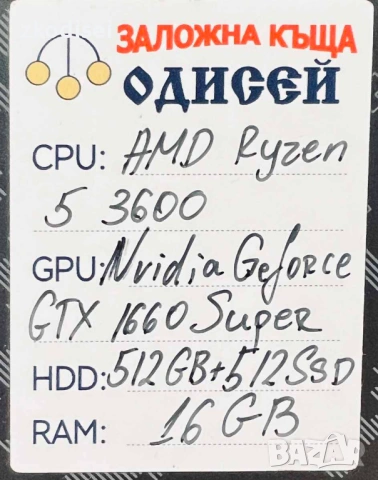 ЗАЛОЖНА КЪЩА
ОДИСЕЙ
CPU: AMD Ryzen
5 3600
GPU: Nvidia Geforce
GTX 1660 Super
HDD: 512GB+512SSD
RAM: 16GB
BAZAR